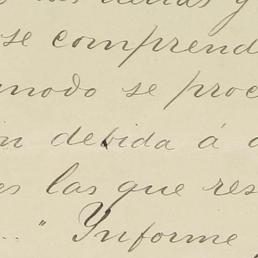 las demás y
se comprend
modo se proc
in debida á
es las que res
..." Informe